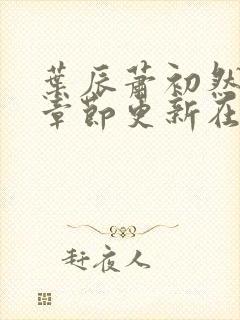 葉辰蕭初然
章節更新在
赶夜人